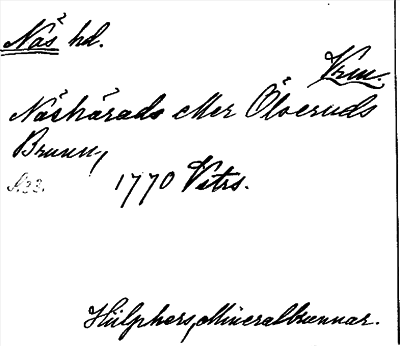 Näs hd.
Vrm.
Näshärads eller Ölseruds
Brunn,
S. 33.
1770 Vitrs.
Hülphers, Mineralbrunnar.